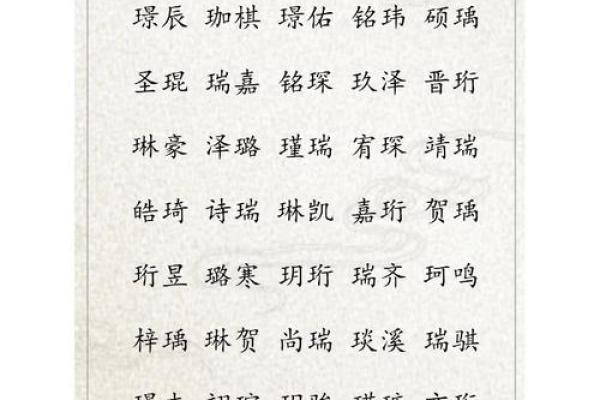 璟辰 珈棋 璟佑 铭玮 硕瑀
圣琨 瑞嘉 铭琛 玖泽 晋珩
琳豪 泽璐 瑾瑞 宥琛 靖瑞
皓琦 诗瑞 琳凯 嘉珩 贺瑀
珩昱 璐寒 玥珩 瑞齐 珂鸣
梓瑀 琳贺 尚瑞 琰溪 瑞骐